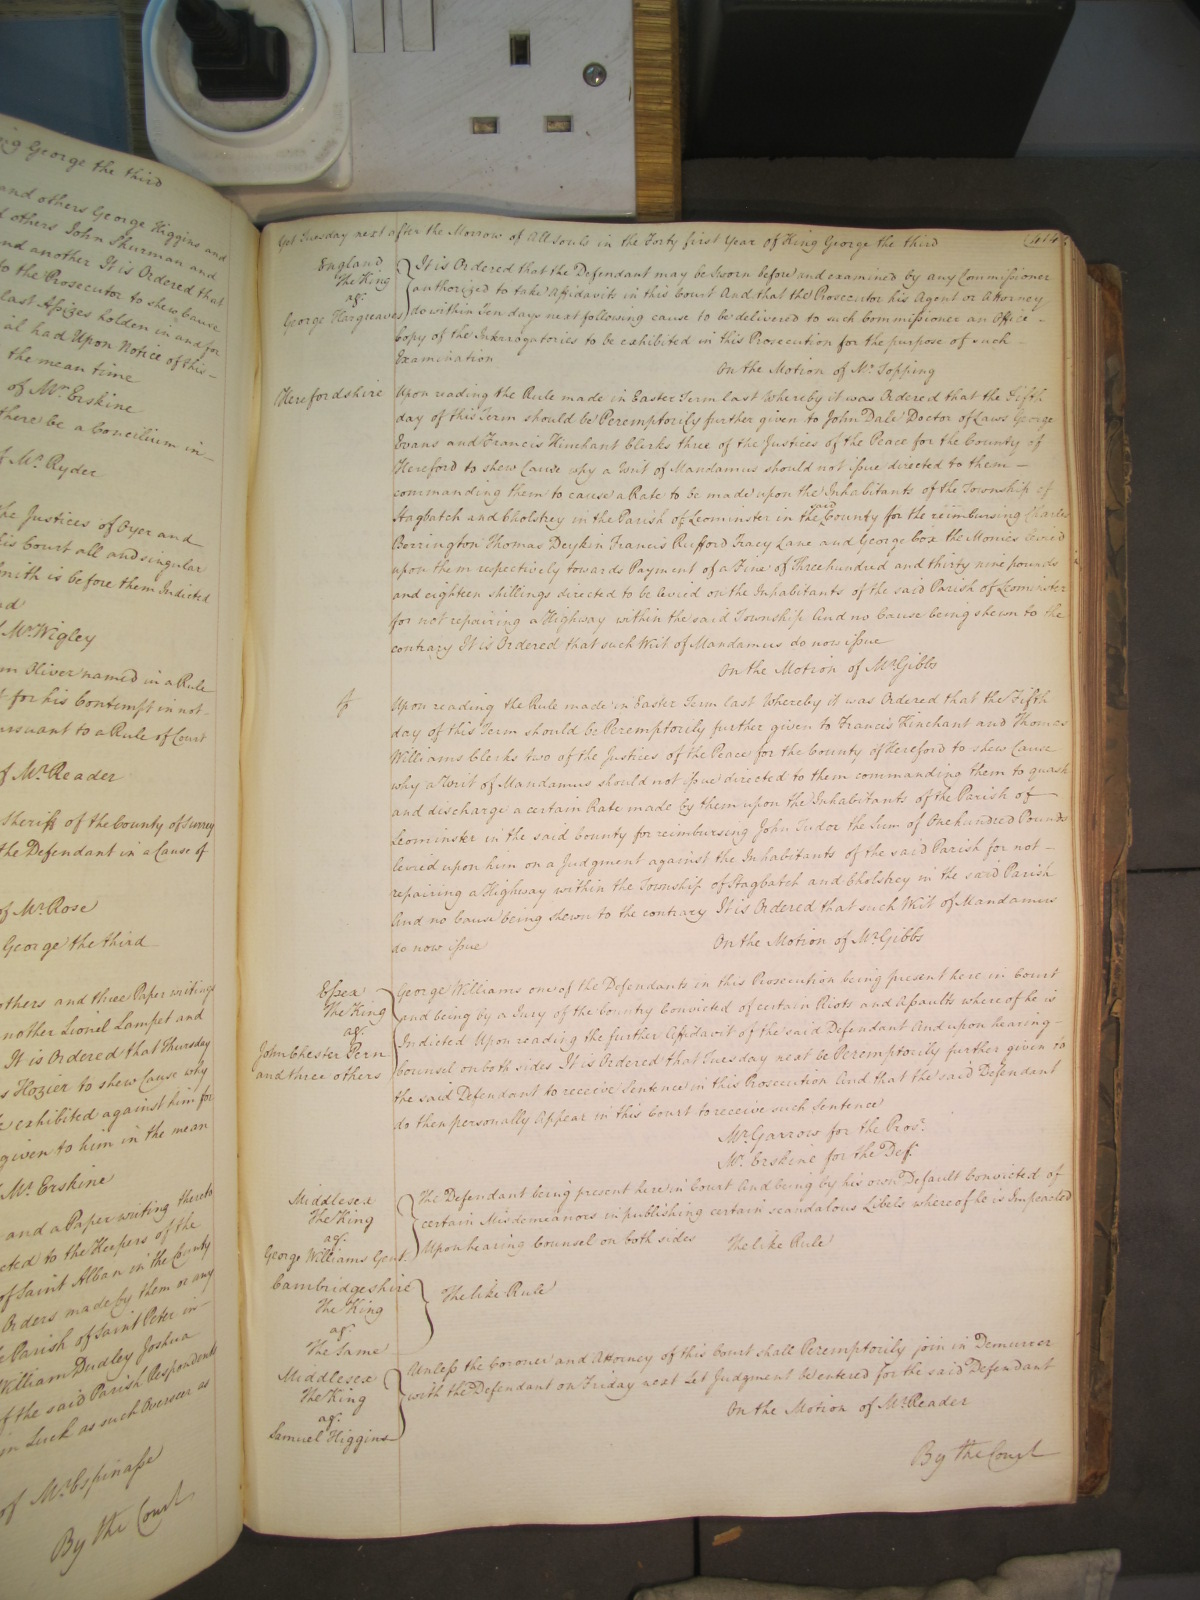 ng George the third
and others George Higgins and
others John Shurman and
nd another It is Ordered that
to the Prosecutor to shew cause
last Assizes holden in and for
al had Upon Notice of this
the mean time
of Mr. Erskine
there be a Concilium in
f Mr. Ryder
he Justices of Oyer and
his Court all and singular
mith is before them Indicted
Mr. Wigley
m Oliver named in a Rule
for his Contempt in not
ursuant to a Rule of Court
f Mr. Reader
Sheriff of the County of Surrey
the Defendant in a Cause of
of Mr. Rose
George the third
others and three Paper writings
nother Lionel Lampet and
It is Ordered that Thursday
s Hozier to shew Cause why
exhibited against him for
given to him in the mean
Mr. Erskine
and a Paper writing thereto
cted to the Keepers of the
of Saint Alban in the County
Orders made by them or any
Parish of Saint Peter in
William Dudley Joshua
f the said Parish Respondents
in Luck as such Overseer as
of Mr. Espinasse
By the Court
Yet Tuesday next after the Morrow of All Souls in the Forty first Year of King George the third
414
England
The King
agt.
George Hargreaves
It is Ordered that the Defendant may be Sworn before and examined by any Commissioner
authorized to take Affidavits in this Court And that the Prosecutor his Agent or Attorney
do within Ten days next following cause to be delivered to such Commissioner an Office
Copy of the Interrogatories to be exhibited in this Prosecution for the purpose of such
Examination
On the Motion of Mr. Topping
Herefordshire
Upon reading the Rule made in Easter Term last Whereby it was Ordered that the Fifth
day of this Term should be Peremptorily further given to John Dale Doctor of Laws George
Evans and Francis Kinchant Clerks three of the Justices of the Peace for the County of
Hereford to shew Cause why a Writ of Mandamus should not issue directed to them
commanding them to cause a Rate to be made upon the Inhabitants of the Township of
Hagbatch and Cholstrey in the Parish of Leominster in the said County for the reimbursing Charles
Berrington Thomas Deykin Francis Rufford Tracy Lane and George Cox the Monies levied
upon them respectively towards Payment of a Fine of Three hundred and thirty nine pounds
and eighteen shillings directed to be levied on the Inhabitants of the said Parish of Leominster
for not repairing a Highway within the said Township And no Cause being shewn to the
contrary It is Ordered that such Writ of Mandamus do now issue
On the Motion of Mr. Gibbs
Upon reading the Rule made in Easter Term last Whereby it was Ordered that the Fifth
day of this Term should be Peremptorily further given to Francis Kinchant and Thomas
Williams Clerks two of the Justices of the Peace for the County of Hereford to shew Cause
why a Writ of Mandamus should not issue directed to them commanding them to quash
and discharge a certain Rate made by them upon the Inhabitants of the Parish of
Leominster in the said County for reimbursing John Tudor the Sum of One hundred Pounds
levied upon him on a Judgment against the Inhabitants of the said Parish for not
repairing a Highway within the Township of Hagbatch and Cholstrey in the said Parish
And no Cause being shewn to the contrary It is Ordered that such Writ of Mandamus
do now issue
On the Motion of Mr. Gibbs
Essex
The King
agt.
John Chester Pern
and three others
George Williams one of the Defendants in this Prosecution being present here in Court
and being by a Jury of the Country Convicted of certain Riots and Assaults whereof he is
Indicted Upon reading the further Affidavit of the said Defendant And upon hearing
Counsel on both sides It is Ordered that Tuesday next be Peremptorily further given to
the said Defendant to receive Sentence in this Prosecution And that the said Defendant
do then personally Appear in this Court to receive such Sentence
Mr. Garrow for the Pros.
Mr. Erskine for the Def.
Middlesex
The King
agt.
George Williams Gent.
The Defendant being present here in Court And being by his own Default Convicted of
certain Misdemeanors in publishing certain scandalous Libels whereof he is Impeached
Upon hearing Counsel on both sides The like Rule
Cambridgeshire
The King
agt.
The Same
The like Rule
Middlesex
The King
agt.
Samuel Higgins
Unless the Coroner and Attorney of this Court shall Peremptorily join in Demurrer
with the Defendant on Friday next Let Judgment be entered for the said Defendant
On the Motion of Mr. Reader
By the Court